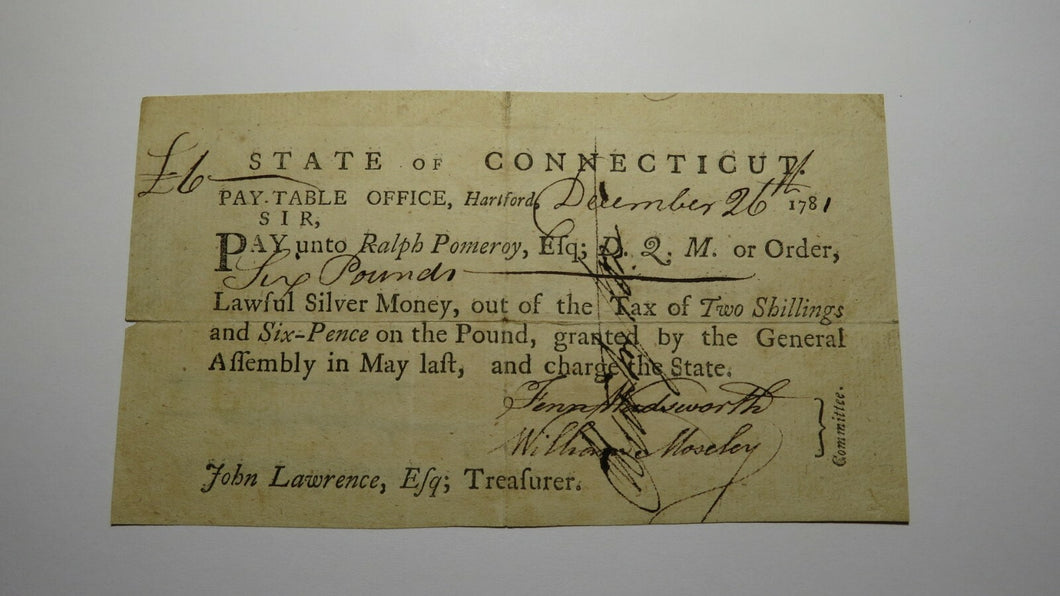 £6 STATE OF CONNECTICUT.
PAY-TABLE OFFICE, Hartford, December 26th 1781
SIR,
PAY unto Ralph Pomeroy, Eſq; D. Q. M. or Order,
Six Pounds
Lawful Silver Money, out of the Tax of Two Shillings
and Six-Pence on the Pound, granted by the General
Aſſembly in May laſt, and charge the State.
Fenn Wadsworth
William Moseley
Committee.
John Lawrence, Eſq; Treaſurer.